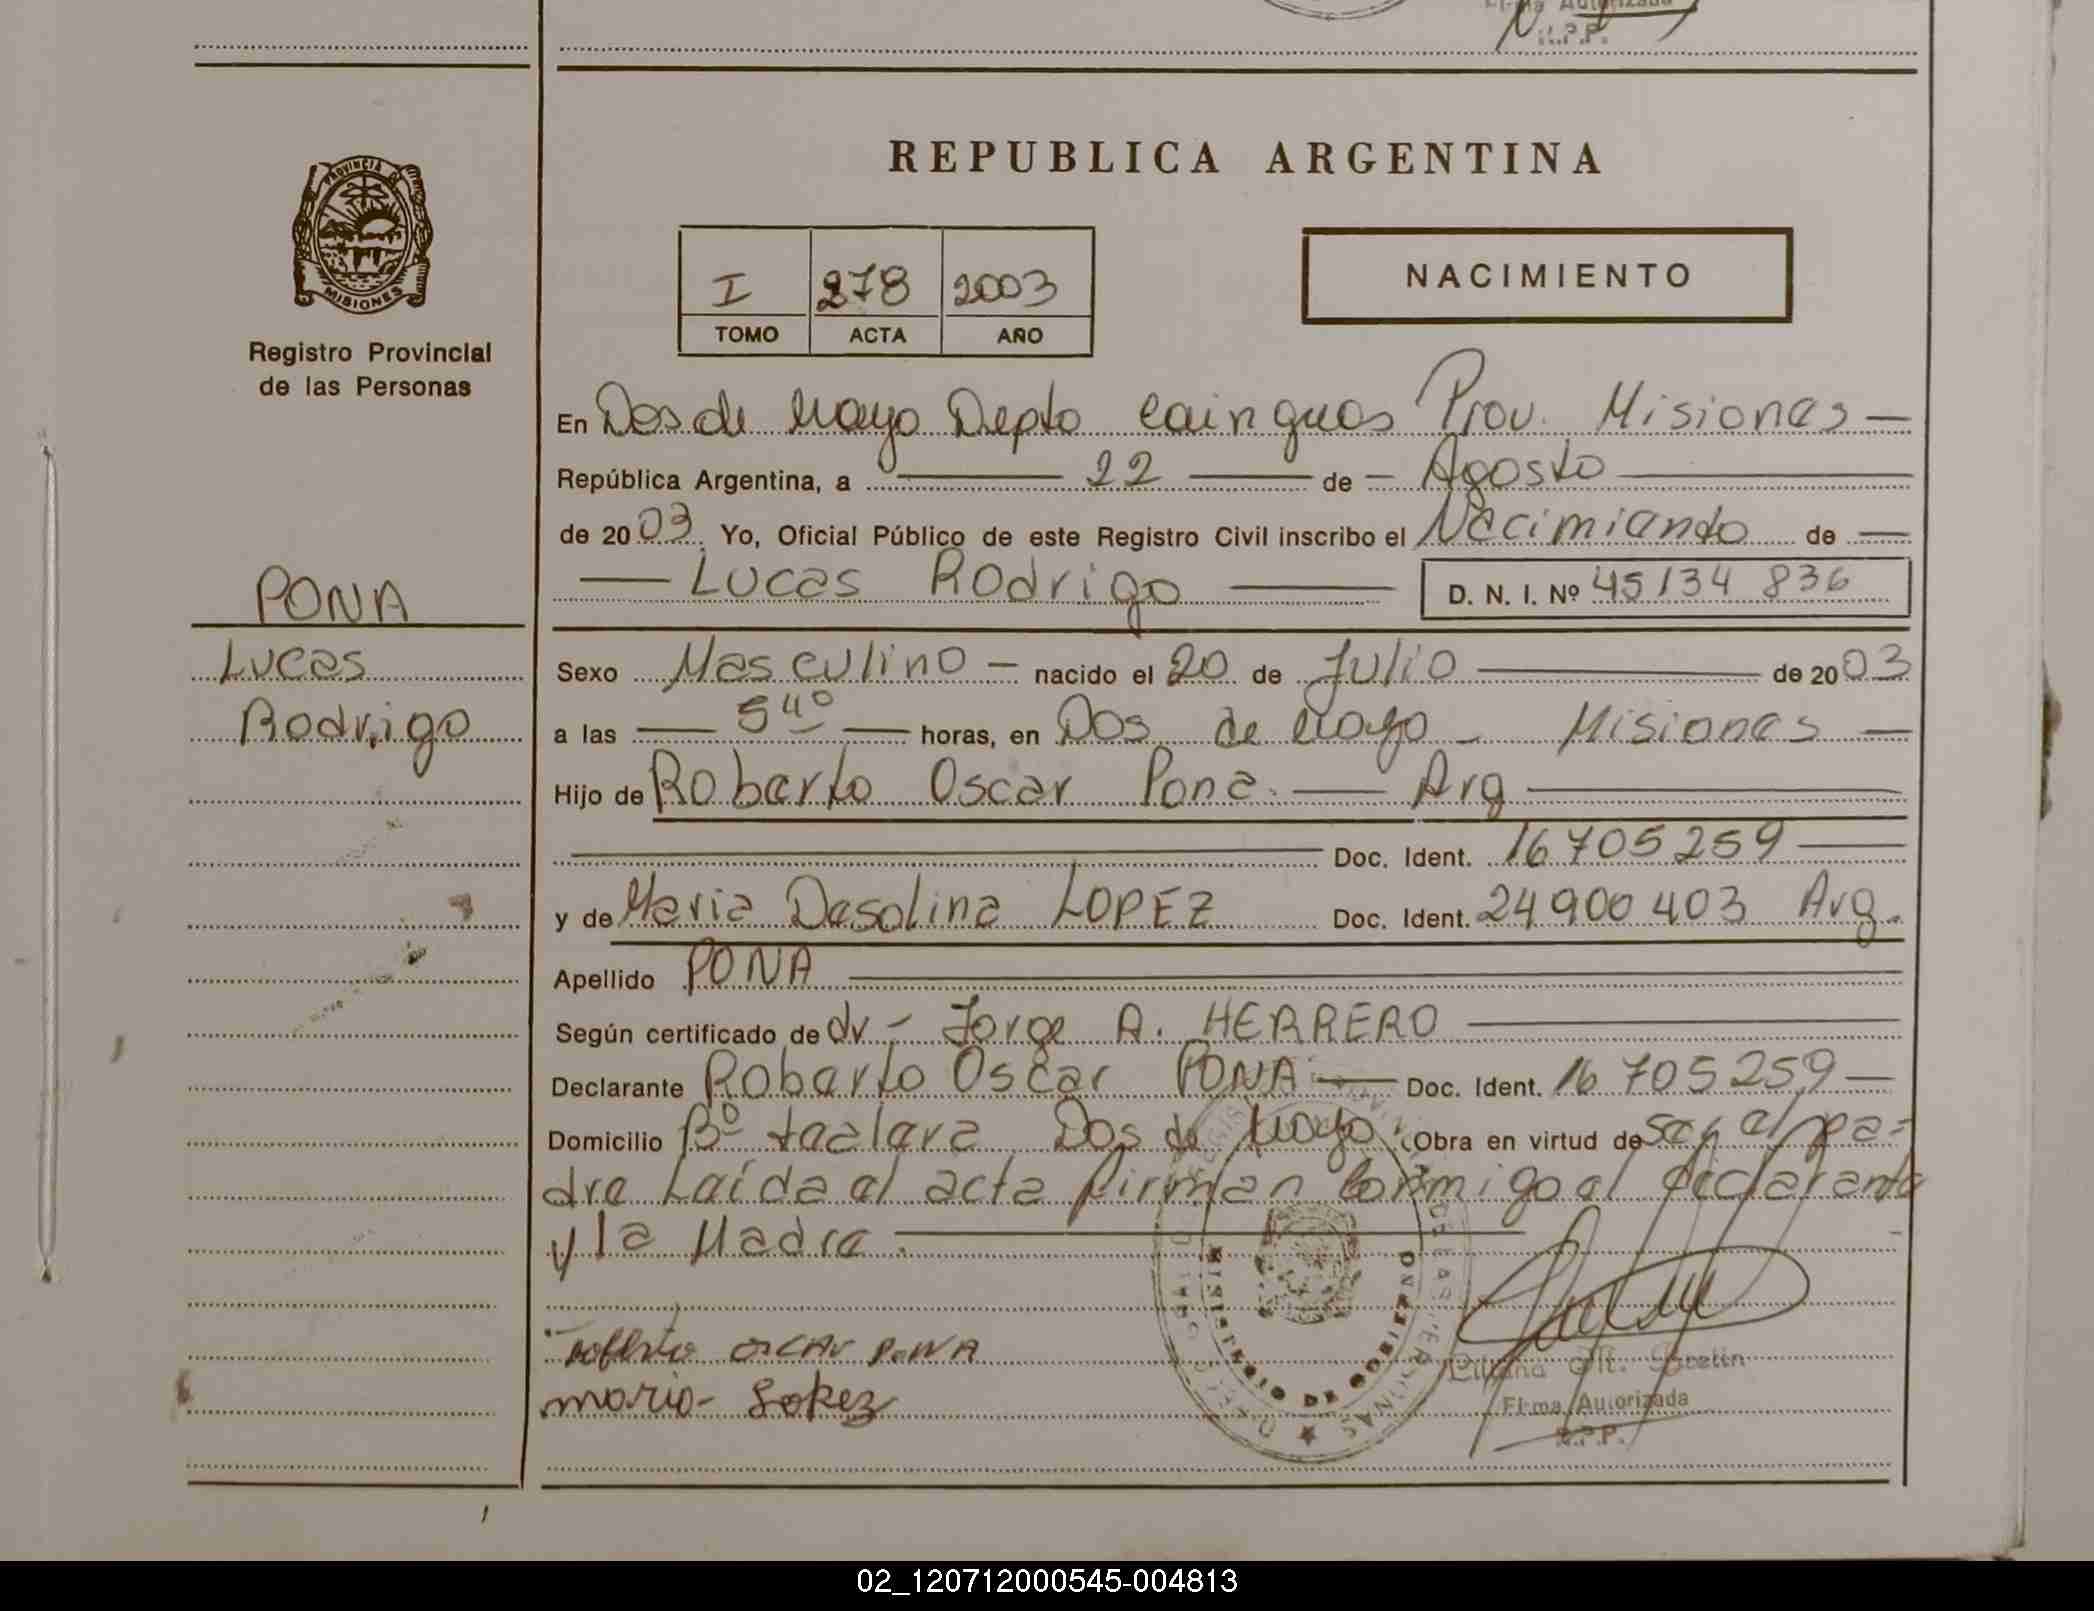 Firma Autorizada
R.P.P.
REPUBLICA ARGENTINA
PROVINCIA DE
MISIONES
Registro Provincial
de las Personas
I 278 2003
TOMO ACTA AÑO
NACIMIENTO
En Dos de Mayo Depto Cainguas Prov. Misiones —
República Argentina, a — 22 — de — Agosto —
de 2003. Yo, Oficial Público de este Registro Civil inscribo el Nacimiento de —
— Lucas Rodrigo — D. N. I. Nº 45134 836
PONA
Lucas
Rodrigo
Sexo Masculino — nacido el 20 de Julio — de 2003
a las — 5 40 — horas, en Dos de Mayo - Misiones —
Hijo de Roberto Oscar Pona. — Arg —
— Doc. Ident. 16 705 259 —
y de Maria Desolina LOPEZ Doc. Ident. 24 900 403 Arg.
Apellido PONA —
Según certificado de dr - Jorge A. HERRERO —
Declarante Roberto Oscar PONA — Doc. Ident. 16 705 259 —
Domicilio Bº Dos de Mayo. Obra en virtud de ser el pa=
dre Leída el acta firman Conmigo el declarante
y la Madre. —
Roberto OSCAR PONA
maria Lopez
MINISTERIO DE GOBIERNO
DE LAS PERSONAS
Liliana
Firma Autorizada
R.P.P.
02_120712000545-004813